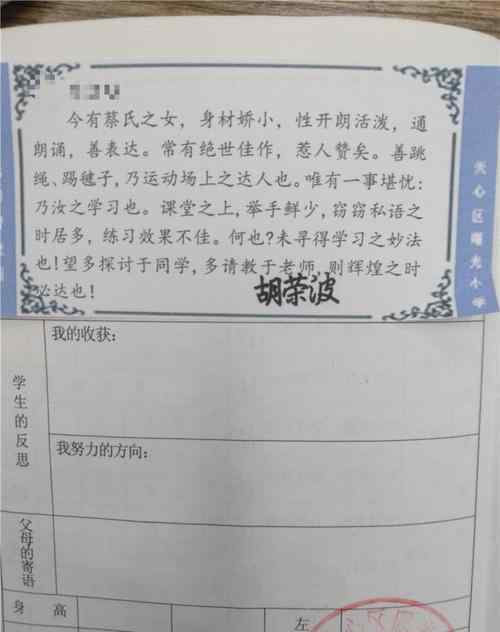 今有蔡氏之女，身材娇小，性开朗活泼，通
朗诵，善表达。常有绝世佳作，惹人赞矣。善跳
绳、踢毽子，乃运动场上之达人也。唯有一事堪忧：
乃汝之学习也。课堂之上，举手鲜少，窃窃私语之
时居多，练习效果不佳。何也？未寻得学习之妙法
也！望多探讨于同学，多请教于老师，则辉煌之时
必达也！
胡荣波
天心区曙光小学
学生的反思
我的收获：
我努力的方向：
父母的寄语
身 高
左